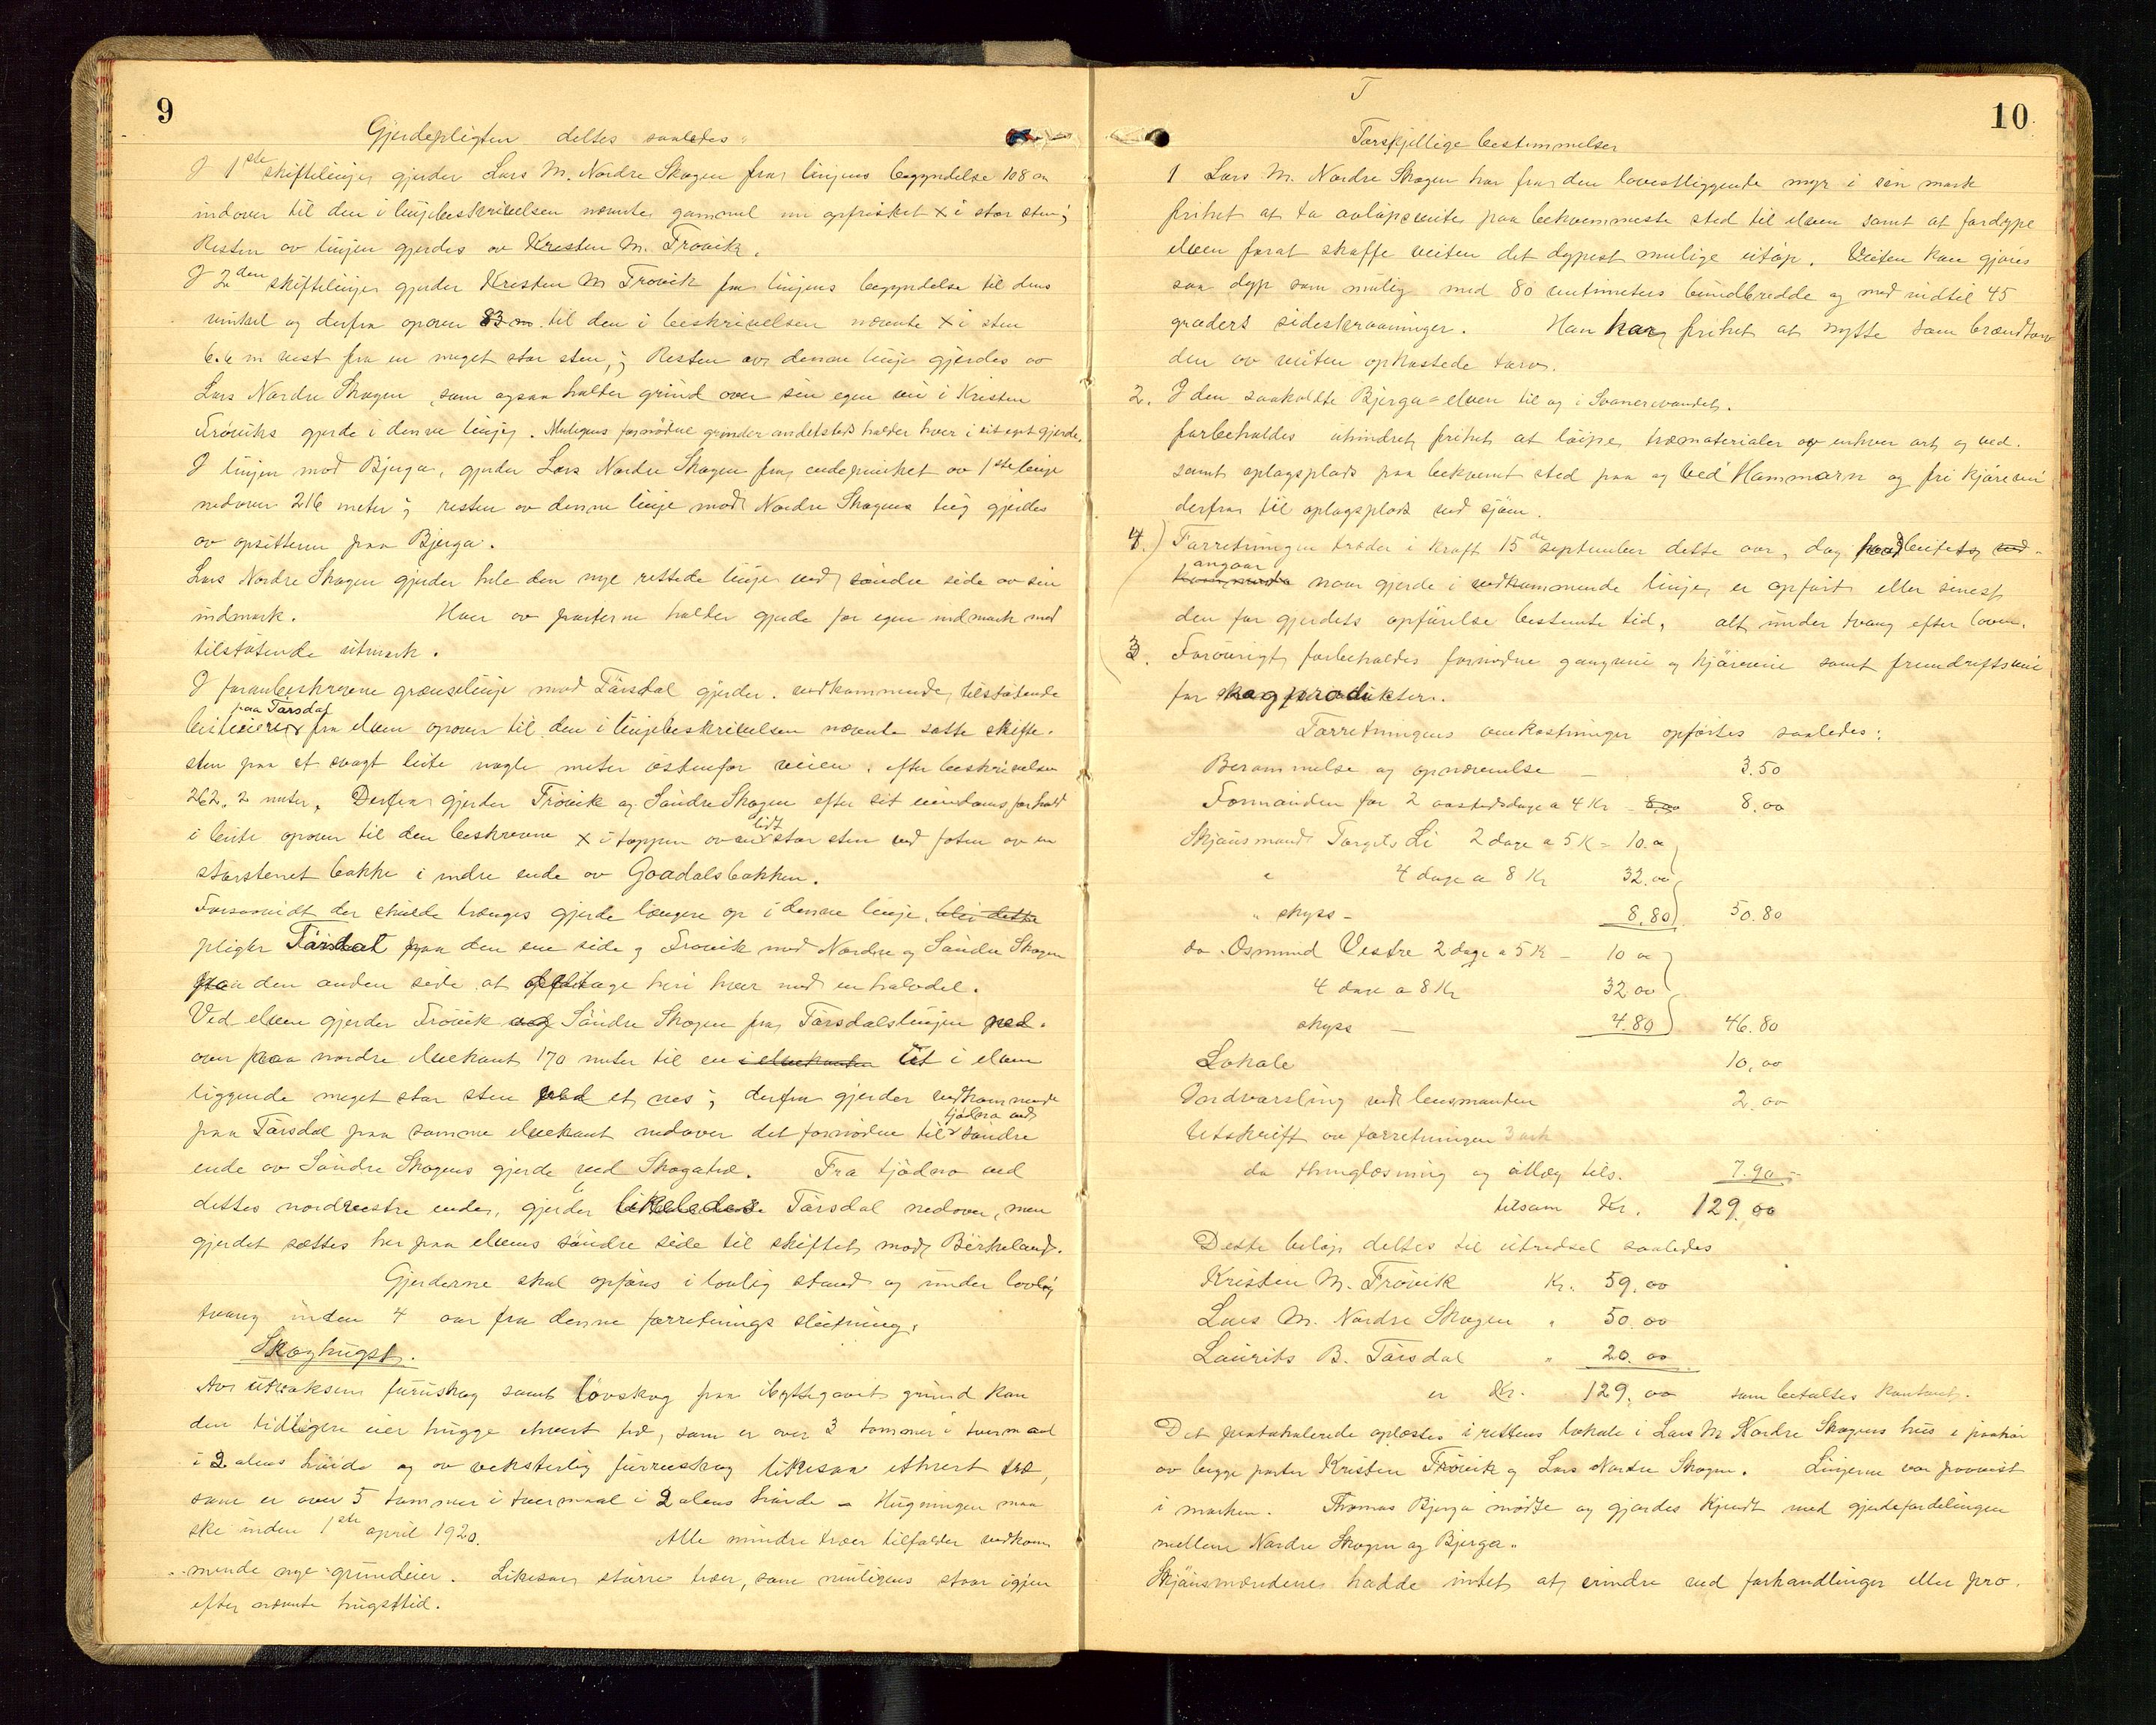 9
Gjerdepligten deltes saaledes:
I 1ste skiftelinje gjerder Lars M. Nordre Skogen fra linjens begyndelse 108 m
indover til den i linjebeskrivelsen nævnte gammel nu opfrisket x i stor sten;
Resten av linjen gjerdes av Kresten M. Trovik.
I 2den skiftelinje gjerder Kresten M Trovik fra linjens begyndelse til dens
vinkel og derfra opover 83 m. til den i beskrivelsen nævnte x i sten
6.6 m vest fra en meget stor sten; Resten av denne linje gjerdes av
Lars Nordre Skogen, som ogsaa holder grind over sin egen vei i Kristen
Tröviks gjerde i denne linje. Muligens fornödne grinder andetsteds holder hver i sit eget gjerde.
I linjen mod Bjerga, gjerder Lars Nordre Skogen fra endepunktet av 1ste linje
nedover 216 meter; resten av denne linje mod Nordre Skogens teig gjerdes
av opsitterne paa Bjerga.
Lars Nordre Skogen gjerder hele den nye rettede linje ved söndre side av sin
indmark. Hver av parterne holder gjerde for egen indmark mod
tilstötende utmark.
I foranbeskrevne grænselinje mod Tärsdal gjerder vedkommende tilstötende
paa Tarsdal
beiteeiere fra elven opover til den i linjebeskrivelsen nævnte satte skifte-
sten paa et svagt leite nogle meter östenfor veien. efter beskrivelsen
262,2 meter. Derfra gjerder Trövik og Söndre Skogen efter sit eiendomsforhold
i beite opover til den beskrevne x i toppen av en lidt stor sten ved foten av en
storstenet bakke i indre ende av Goadalsbakken.
Forsaavidt der skulde trænges gjerde længere op i denne linje, blir dette
pligter Tärsdal paa den ene side og Trovik med Nordre og Söndre Skogen
paa den anden side at deltage heri hver med en halvdel.
Ved elven gjerder Trövik og Söndre Skogen fra Tärsdalslinjen ned-
over paa nordre elvekant 170 meter til en i elvekanten üt i elven
liggende meget stor sten ved et nes; derfra gjerder vedkommende
paa Tärsdal paa samme elvekant nedover det fornödne til tjödna ved söndre
ende av Söndre Skogens gjerde ved Skogatræ. Fra tjödna ved
dettes nordvestre ende, gjerder likeledes Tärsdal nedover, men
gjerdet sættes her paa elvens söndre side til skiftet mod Birkeland.
Gjerderne skal opföres i lovlig stand og under lovlig
tvang inden 4 aar fra denne forretnings slutning.
Skoghugst.
Av utvoksen furuskog samt lövskog paa ibyttegavet grund kan
den tidligere eier hugge ethvert træ, som er over 3 tommer i tvermaal
i 2 alens höide og av veksterlig furuskog likesaa ethvert træ,
som er over 5 tommer i tvermaal i 2 alens höide - Hugningen maa
ske inden 1ste april 1920. Alle mindre trær tilfalder vedkom-
mende nye grundeier. Likesaa större trær, som muligens staar igjen
efter nævnte hugsttid.
10
Forskjellige bestemmelser
1 Lars M. Nordre Skogen har fra den lavestliggende myr i sin mark
frihet at ta avlöpsveite paa bekvemmeste sted til elven samt at fordype
elven forat skaffe veiten det dypest mulige utlöp. Veiten kan gjöres
saa dyp som mulig med 80 centimeters bundbredde og med indtil 45
graders sideskraaninger. Han har frihet at nytte som brændtorv
den av veiten opkastede torv.
2. I den saakaldte Bjerga-elven til og i Svanesvandet
forbeholdes uhindret frihet at löipe træmaterialer av enhver art og ved.
samt oplagsplads paa bekvemt sted paa og ved Hammarn og fri kjörevei
derfra til oplagsplads ved sjöen.
4.) Forretningen træder i kraft 15de september dette aar, dog hvad beitet
angaar naar gjerde i vedkommende linje er opfört eller senest
den for gjerdets opförelse bestemte tid, alt under tvang efter loven.
3. Forövrigt forbeholdes fornödne gangveie og kjöreveie samt fremdriftsveie
for skogprodukter.
Forretningens omkostninger opförtes saaledes:
Berammelse og opnævnelse – 3.50
Formanden for 2 aastedsdage a 4 Kr – 8.00 8.00
Skjönsmand Torgils Li 2 dage a 5 K = 10.00
" 4 dage a 8 Kr 32.00
" skyss – 8.80 50.80
do Osmund Vestre 2 dage a 5 K – 10 00
4 dage a 8 Kr 32.00
skyss – 4.80 46.80
Lokale 10,00
Indvarsling ved lensmanden 2.00
Utskrift av forretningen 3 ark
do thinglæsning og utlæg tils. 7.90
tilsam Kr. 129.00
Dette belöp deltes til utredsel saaledes
Kristen M. Trövik Kr. 59.00
Lars M. Nordre Skogen " 50.00
Laurits B. Tärsdal " 20.00
er Kr. 129.00 som betaltes kontant.
Det protokolerede oplæstes i rettens lokale i Lars M Nordre Skogens hus i paahör
av begge parter Kristen Trövik og Lars Nordre Skogen. Linjerne var paavist
i marken. Thomas Bjerga mödte og gjordes kjendt med gjerdefordelingen
mellem Nordre Skogen og Bjerga.
Skjönsmændene hadde intet at erindre ved forhandlinger eller pro-